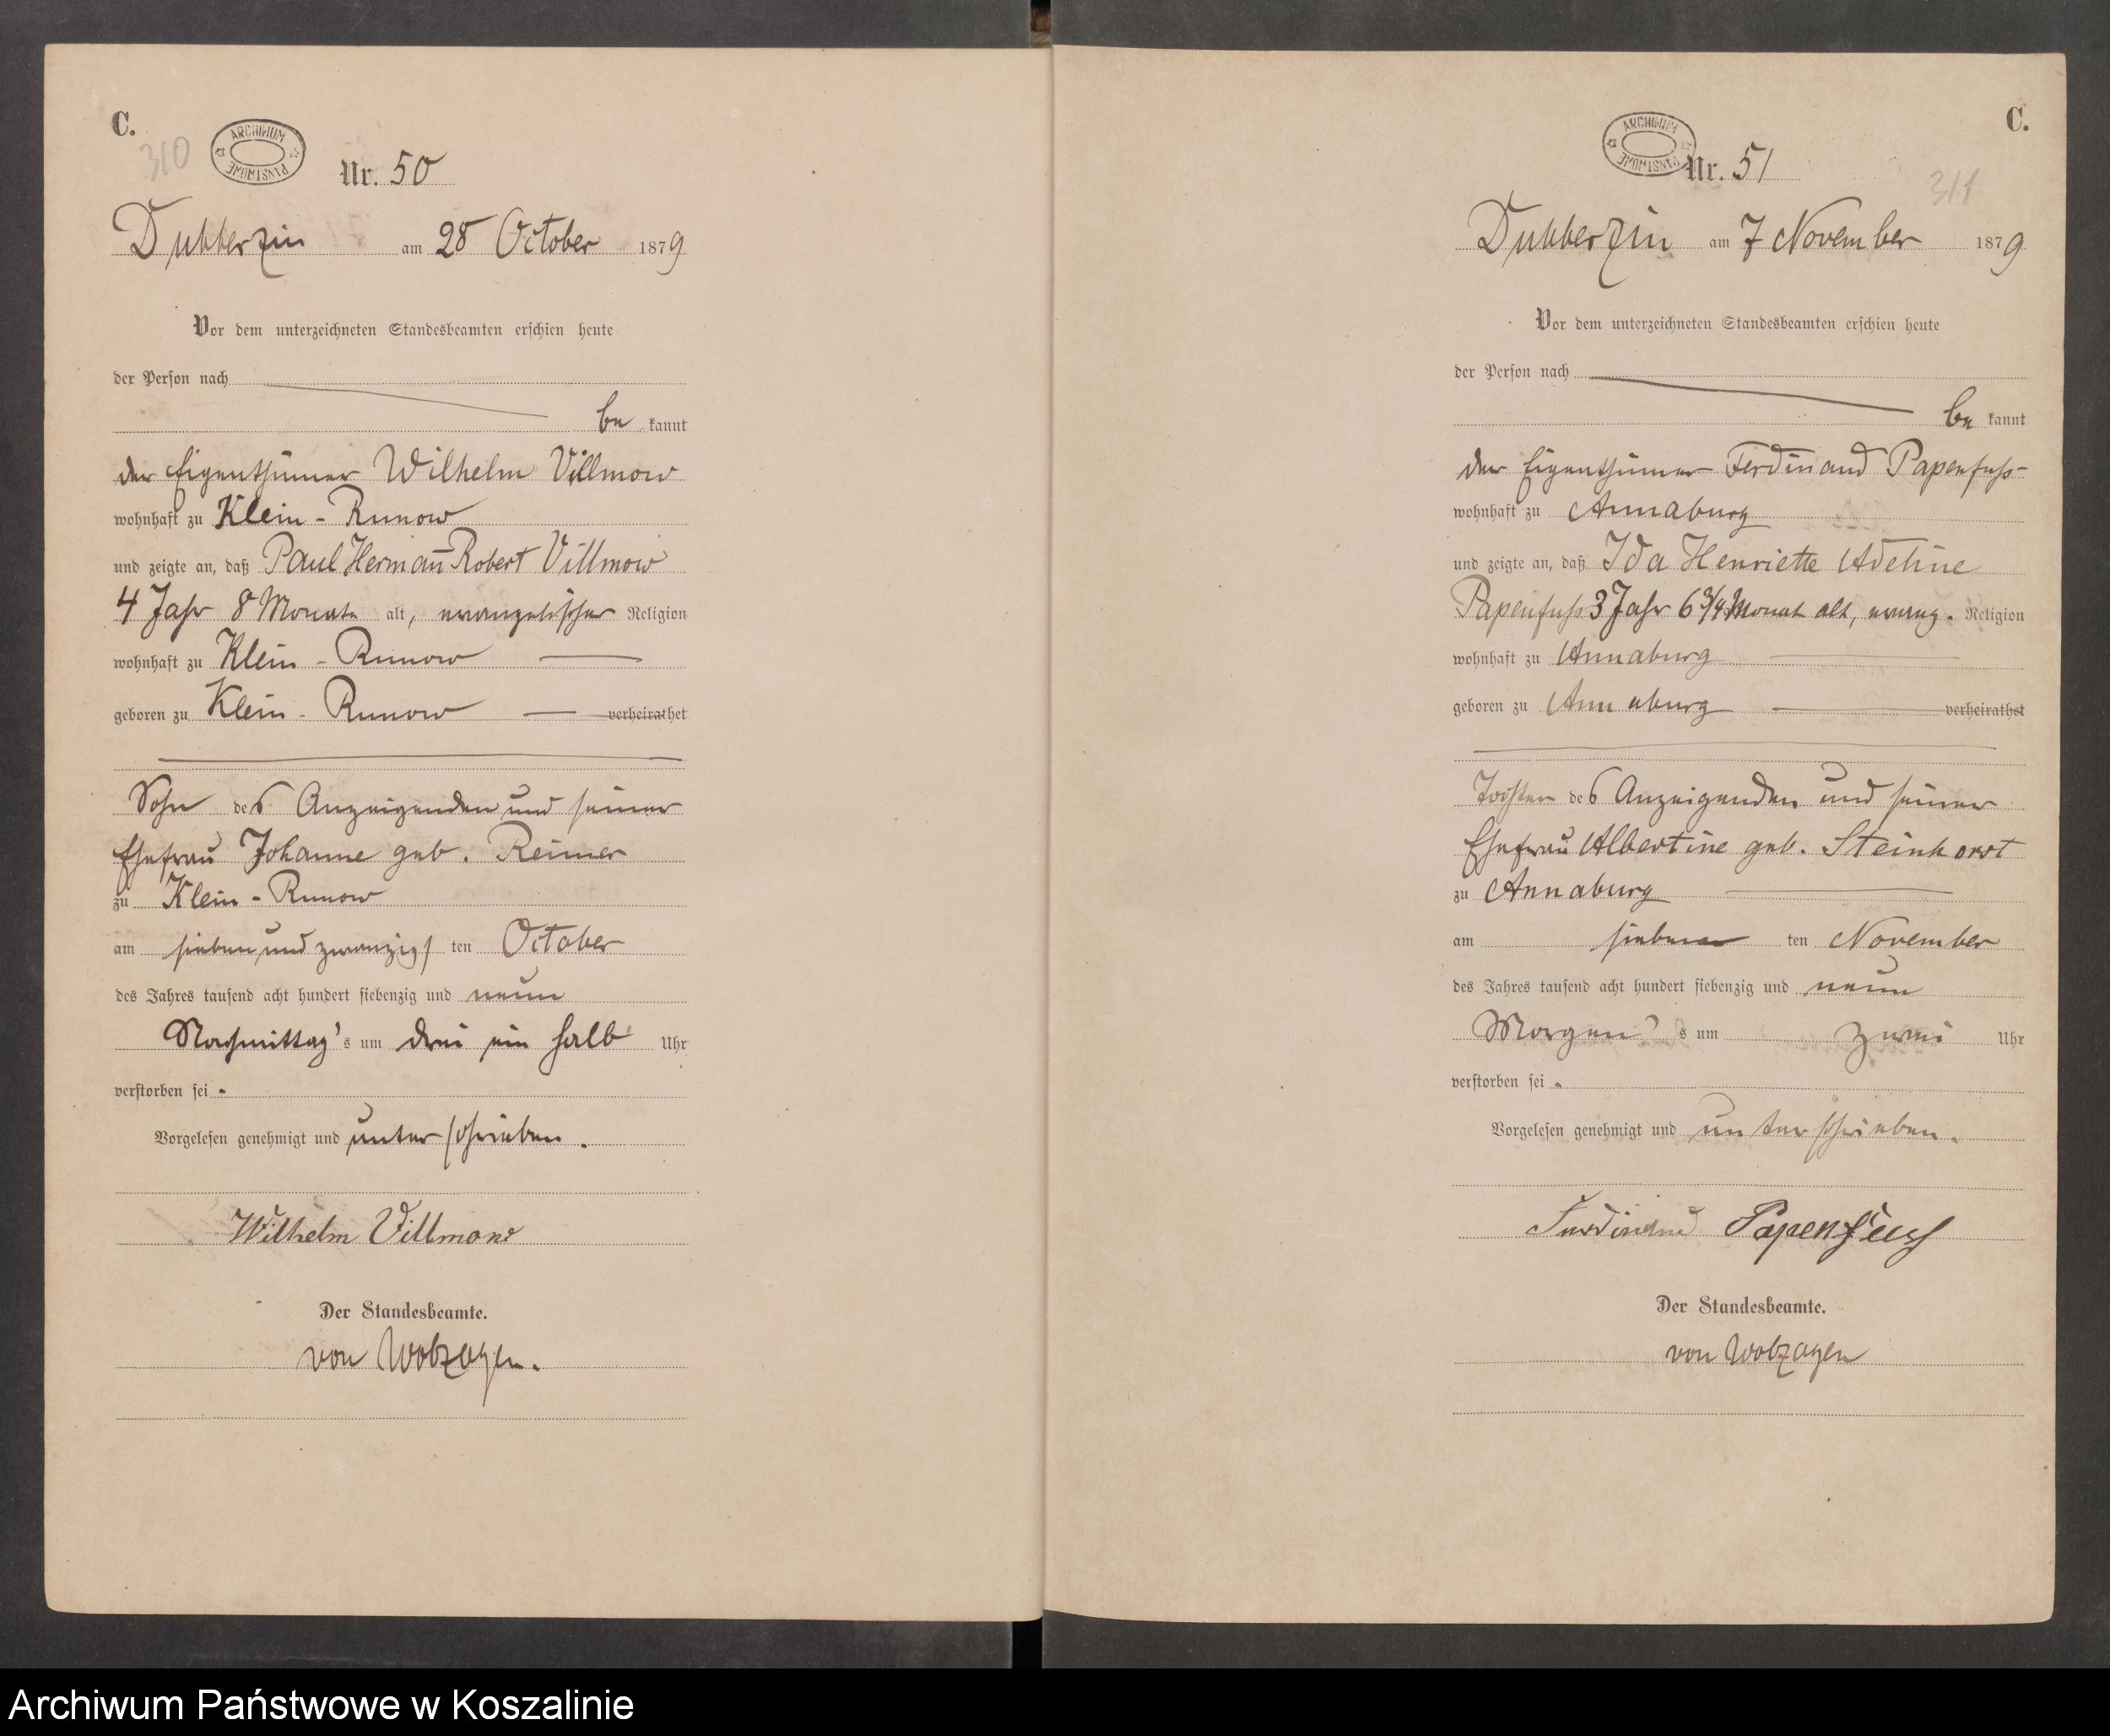 C.
310
ARCHIWUM
PAŃSTWOWE
Nr. 50
Dubberzin am 28 October 1879
Vor dem unterzeichneten Standesbeamten erschien heute
der Person nach
be kannt
der Eigenthümer Wilhelm Villmow
wohnhaft zu Klein-Runow
und zeigte an, daß Paul Herman̄ Robert Villmow
4 Jahr 8 Monate alt, evangelischer Religion
wohnhaft zu Klein-Runow
geboren zu Klein-Runow verheirathet
Sohn des Anzeigenden und seiner
Ehefrau Johanne geb. Reimer
zu Klein-Runow
am sieben und zwanzigs ten October
des Jahres tausend acht hundert siebenzig und neun
Nachmittag's um drei ein halb Uhr
verstorben sei.
Vorgelesen genehmigt und unterschrieben.
Wilhelm Villmow
Der Standesbeamte.
von Wolzogen.
C.
ARCHIWUM
PAŃSTWOWE
Nr. 51
311
Dubberzin am 7 November 1879
Vor dem unterzeichneten Standesbeamten erschien heute
der Person nach
be kannt
der Eigenthümer Ferdinand Papenfuss
wohnhaft zu Annaburg
und zeigte an, daß Ida Henriette Adeline
Papenfuss 3 Jahr 6 3/4 Monat alt, evang. Religion
wohnhaft zu Annaburg
geboren zu Annaburg verheirathet
Tochter des Anzeigenden und seiner
Ehefrau Albertine geb. Steinhorst
zu Annaburg
am sieben ten November
des Jahres tausend acht hundert siebenzig und neun
Morgen's um zwei Uhr
verstorben sei.
Vorgelesen genehmigt und unterschrieben.
Ferdinand Papenfuss
Der Standesbeamte.
von Wolzogen
Archiwum Państwowe w Koszalinie